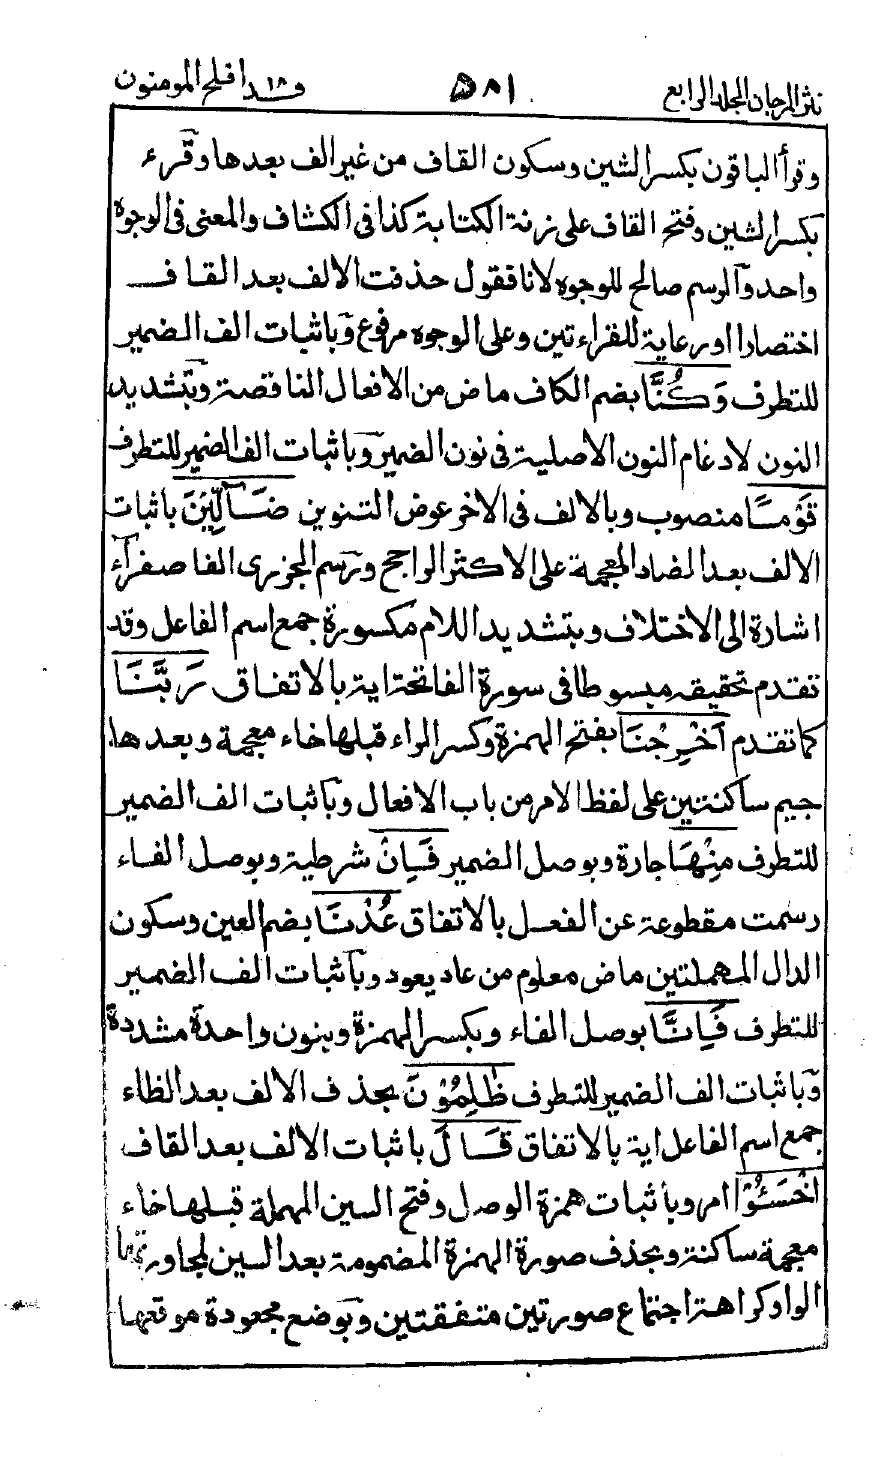 نثر المرجان المجلد الرابع ٥٨١ قد افلح ١٨ المومنون
وقرأ الباقون بكسر الشين وسكون القاف من غير الف بعدها وقرء
بكسر الشين وفتح القاف على زنة الكتابة كذا فى الكشاف والمعنى فى الوجوه
واحد والرسم صالح للوجوه لانا نقول حذفت الالف بعد القاف
اختصارا او رعاية للقراءتين وعلى الوجوه مرفوع وباثبات الف الضمير
للتطرف وَكُنَّا بضم الكاف ماض من الافعال الناقصة وبتشديد
النون لادغام النون الاصلية فى نون الضمير وباثبات الف الضمير للتطرف
قَوْمًا منصوب وبالالف فى الاخر عوض التنوين ضَآلِّيْنَ باثبات
الالف بعد الضاد المعجمة على الاكثر الراجح ورسم الجزرى الفا صفراء
اشارة الى الاختلاف وبتشديد اللام مكسورة جمع اسم الفاعل وقد
تقدم تحقيقه مبسوطا فى سورة الفاتحة اية بالاتفاق رَبَّنَا
كما تقدم اَخْرِجْنَا بفتح الهمزة وكسر الراء قبلها خاء معجمة وبعدها
جيم ساكنتين على لفظ الامر من باب الافعال وباثبات الف الضمير
للتطرف مِنْهَا جارة وبوصل الضمير فَاِنْ شرطية وبوصل الفاء
رسمت مقطوعة عن الفعل بالاتفاق عُدْنَا بضم العين وسكون
الدال المهملتين ماض معلوم من عاد يعود وباثبات الف الضمير
للتطرف فَاِنَّا بوصل الفاء وبكسر الهمزة وبنون واحدة مشددة
وباثبات الف الضمير للتطرف ظٰلِمُوْنَ بحذف الالف بعد الظاء
جمع اسم الفاعل اية بالاتفاق قَالَ باثبات الالف بعد القاف
اخْسَـُٔوْا امر وباثبات همزة الوصل وفتح السين المهملة قبلها خاء
معجمة ساكنة وبحذف صورة الهمزة المضمومة بعد السين لمجاورتها
الواو كراهة اجتماع صورتين متفقتين وبوضع مجعودة موقعها